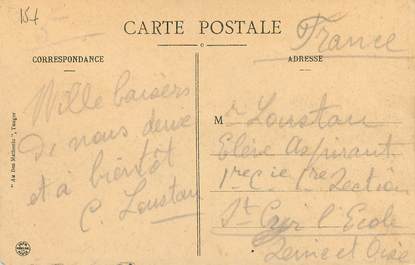 15f
CARTE POSTALE
France
CORRESPONDANCE
ADRESSE
Mille baisers
De nous deux
et à bientôt
C. Loustau
Mr Loustau
Elève Aspirant
1re Cie 1re Section
St Cyr l'Ecole
Seine et Oise
"Au Bon Marché", Tanger